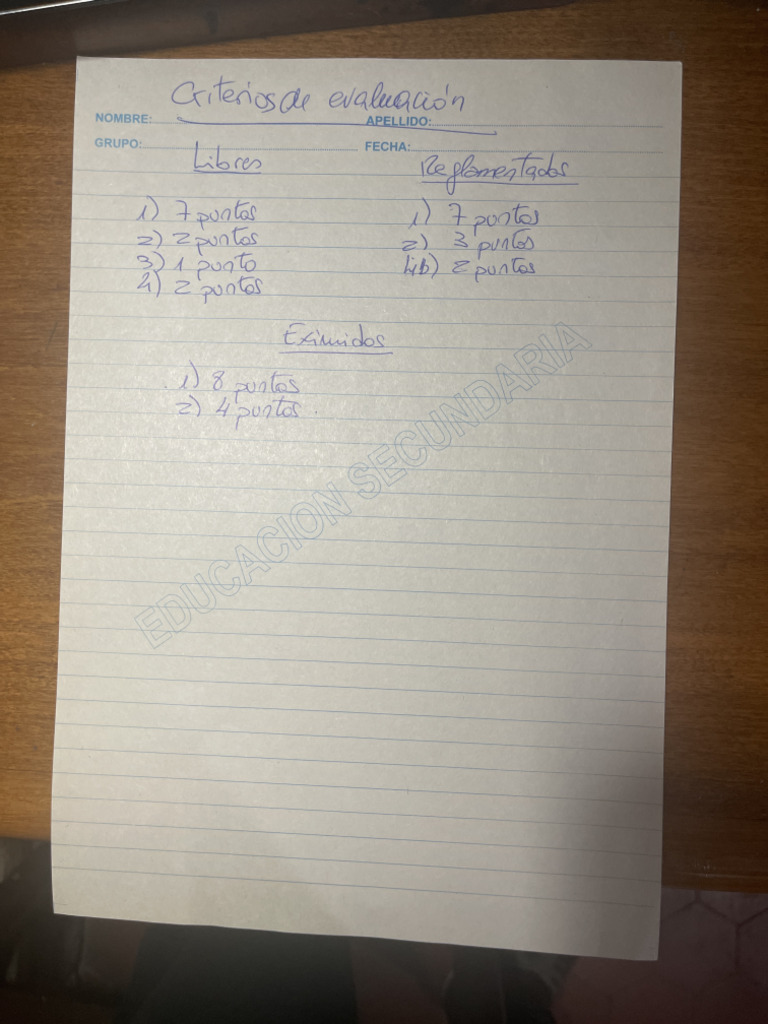 Criterios de evaluación
NOMBRE: APELLIDO:
GRUPO: FECHA:
Libres
1) 7 puntos
2) 2 puntos
3) 1 punto
4) 2 puntos
Reglamentados
1) 7 puntos
2) 3 puntos
Lib) 2 puntos
Eximidos
1) 8 puntos
2) 4 puntos.
EDUCACION SECUNDARIA